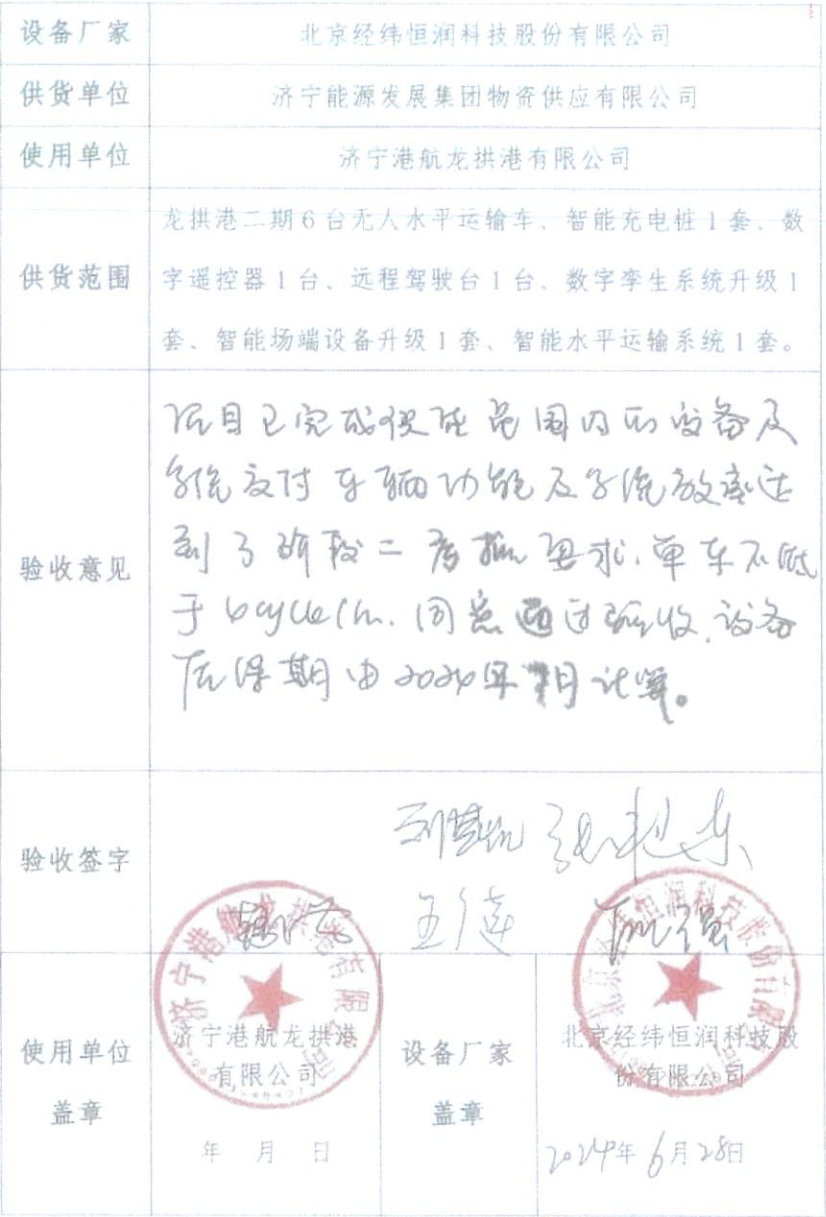 设备厂家
北京经纬恒润科技股份有限公司
供货单位
济宁能源发展集团物资供应有限公司
使用单位
济宁港航龙拱港有限公司
供货范围
龙拱港二期6台无人水平运输车、智能充电桩1套、数
字遥控器1台、远程驾驶台1台、数字孪生系统升级1
套、智能场端设备升级1套、智能水平运输系统1套。
验收意见
项目已完成供货范围内的设备及
系统交付车辆功能及系统效率达
到了阶段二考核要求，单车不低
于6cycle/h.同意通过验收，设备
质保期由2024年7月计算。
验收签字
济宁港航龙拱港有限公司
北京经纬恒润科技股份有限公司
使用单位
盖章
济宁港航龙拱港
有限公司
年 月 日
设备厂家
盖章
北京经纬恒润科技股
份有限公司
2024年6月28日